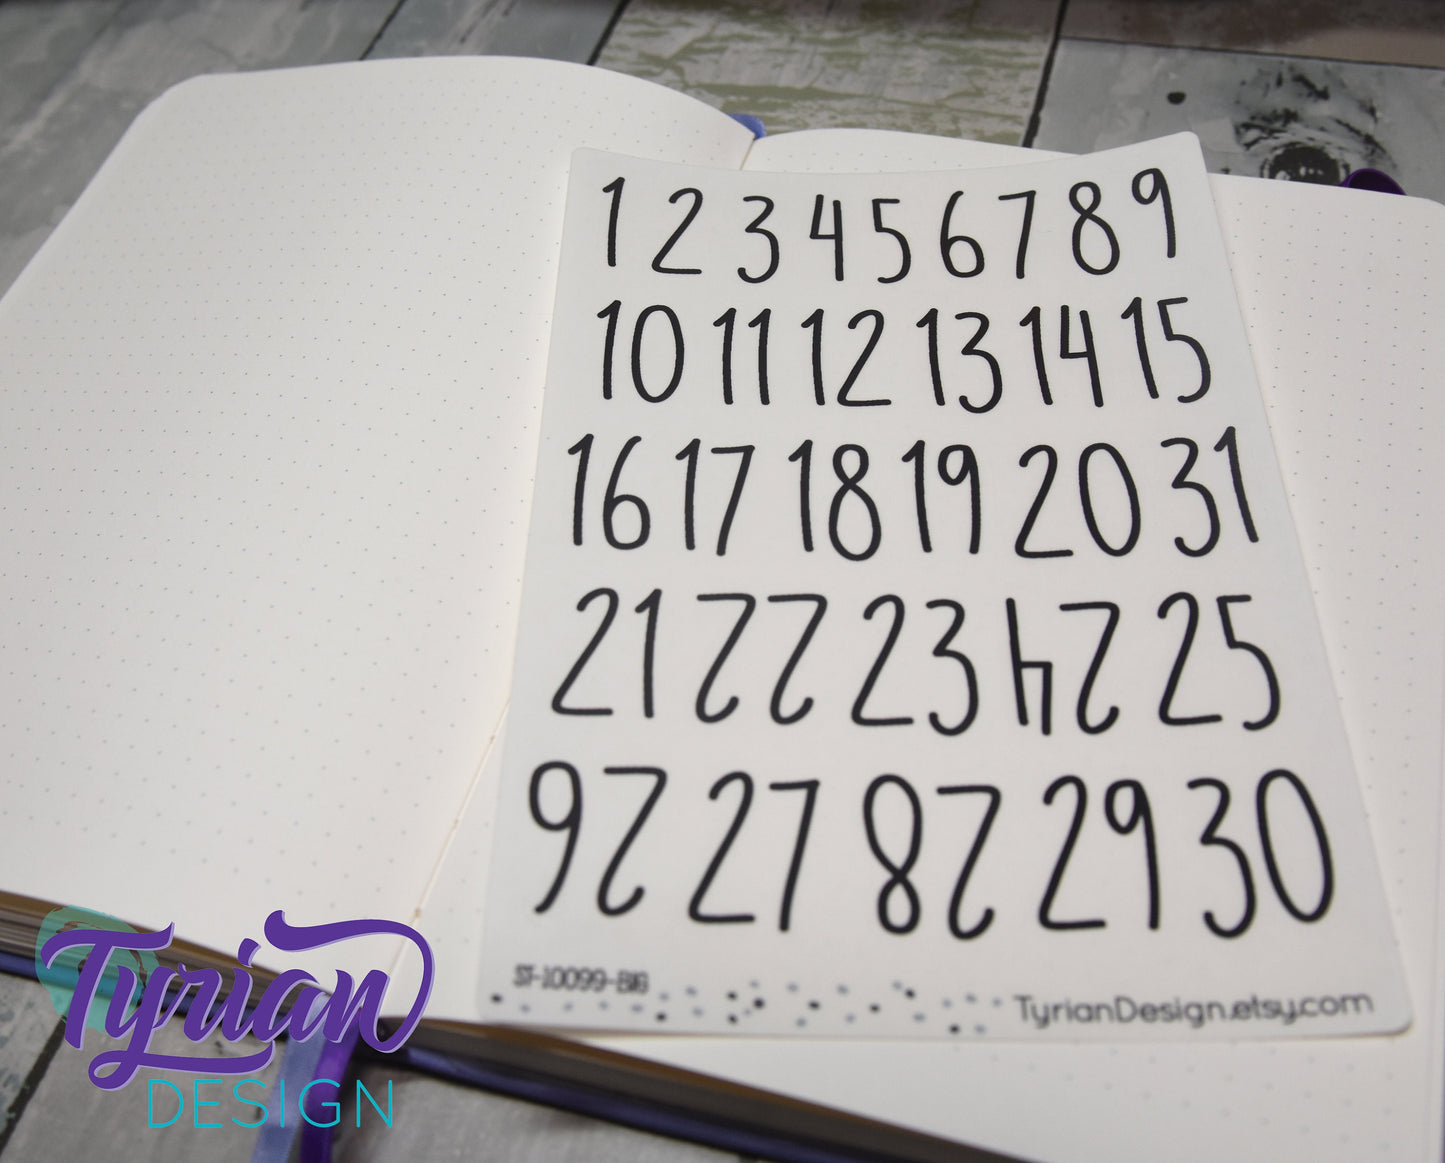 1 2 3 4 5 6 7 8 9
10 11 12 13 14 15
16 17 18 19 20 31
21 22 23 24 25
26 27 28 29 30
ST-10099-BIG
TyrianDesign.etsy.com
Tyrian
DESIGN